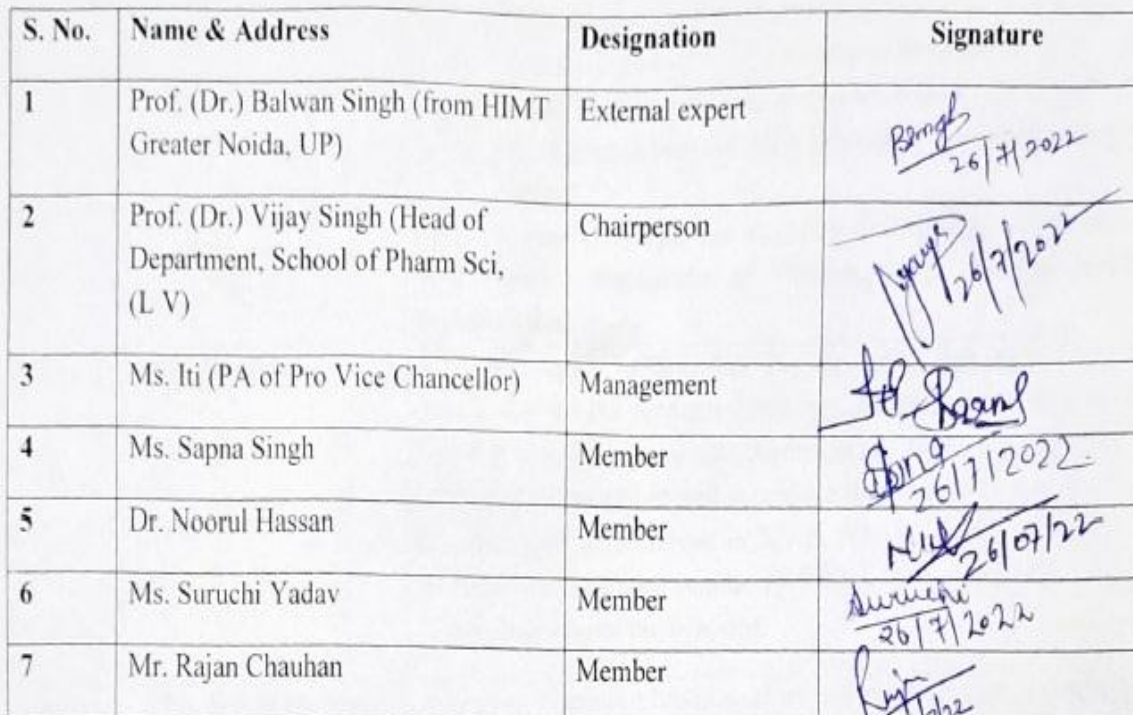 S. No. Name & Address Designation Signature
1 Prof. (Dr.) Balwan Singh (from HIMT External expert
Greater Noida, UP)
26/7/2022
2 Prof. (Dr.) Vijay Singh (Head of Chairperson
Department, School of Pharm Sci,
(L V)
26/7/2022
3 Ms. Iti (PA of Pro Vice Chancellor) Management
4 Ms. Sapna Singh Member
26/7/2022
5 Dr. Noorul Hassan Member
26/07/22
6 Ms. Suruchi Yadav Member Suruchi
26/7/2022
7 Mr. Rajan Chauhan Member